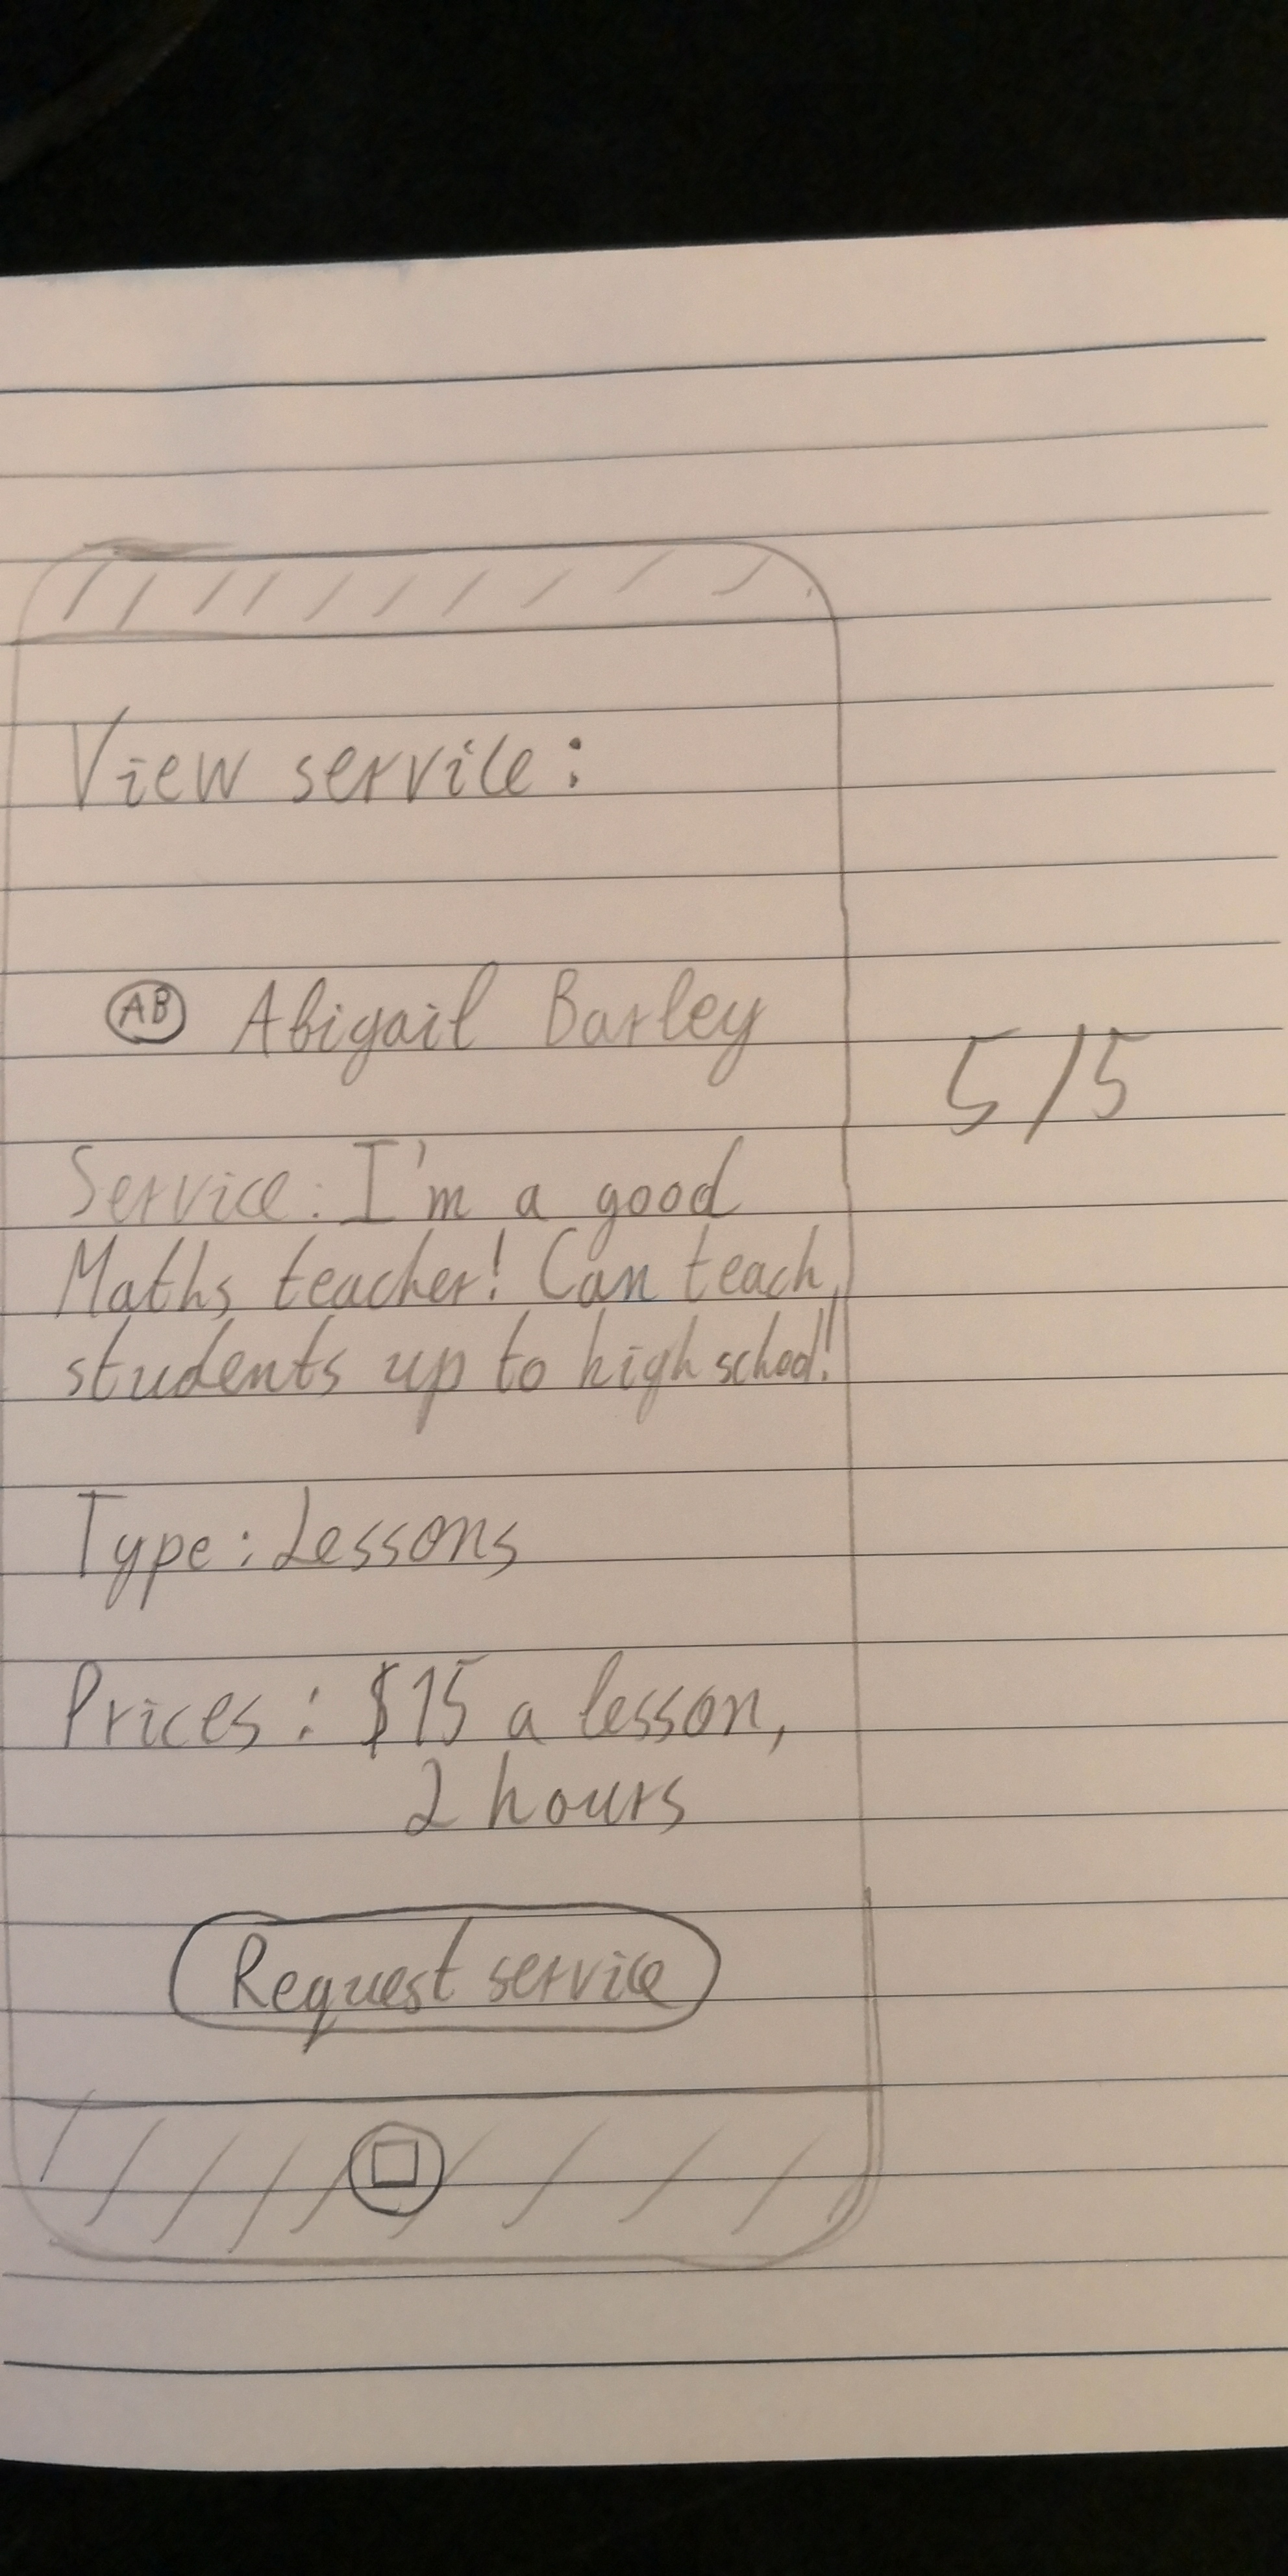 View service:
AB Abigail Barley
5/5
Service: I'm a good
Maths teacher! Can teach
students up to high school!
Type: Lessons
Prices: $15 a lesson,
2 hours
Request service